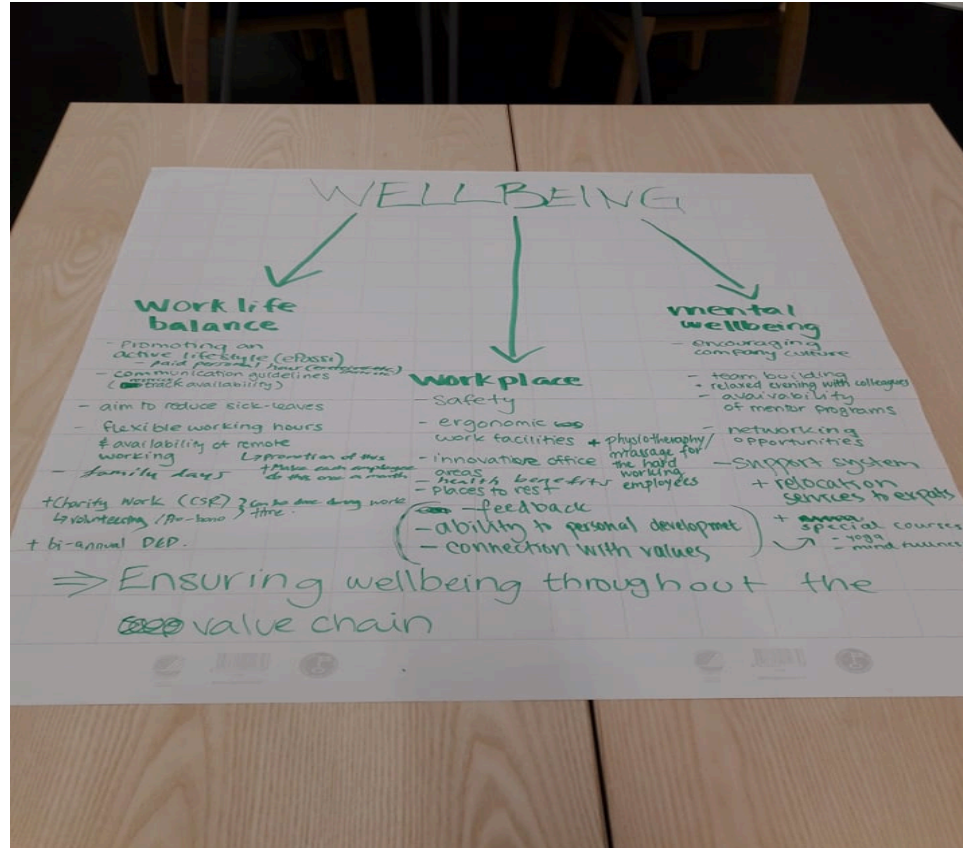 WELLBEING
Work life
balance
- Promoting an
active lifestyle (ePassi)
- paid personal hour
- communication guidelines
( track availability)
- aim to reduce sick-leaves
- flexible working hours
& availability of remote
working ↳ promotion of this
+ Make each employee
do this once a month
- family days
+ Charity work (CSR) } can be done during work
↳ volunteering / Pro-bono } time.
+ bi-annual
Workplace
- Safety
- ergonomic
work facilities
- innovative office
areas
- health benefits
- Places to rest
+ physiotherapy/
massage for
the hard
working
employees
- feedback
- ability to personal developmet
- connection with values
mental
wellbeing
- encouraging
company culture
- team building
+ relaxed evening with colleagues
- availability
of mentor programs
- networking
opportunities
- Support system
+ relocation
services to expats
+ special courses
- yoga
- mindfullnes
⇒ Ensuring wellbeing throughout the
value chain